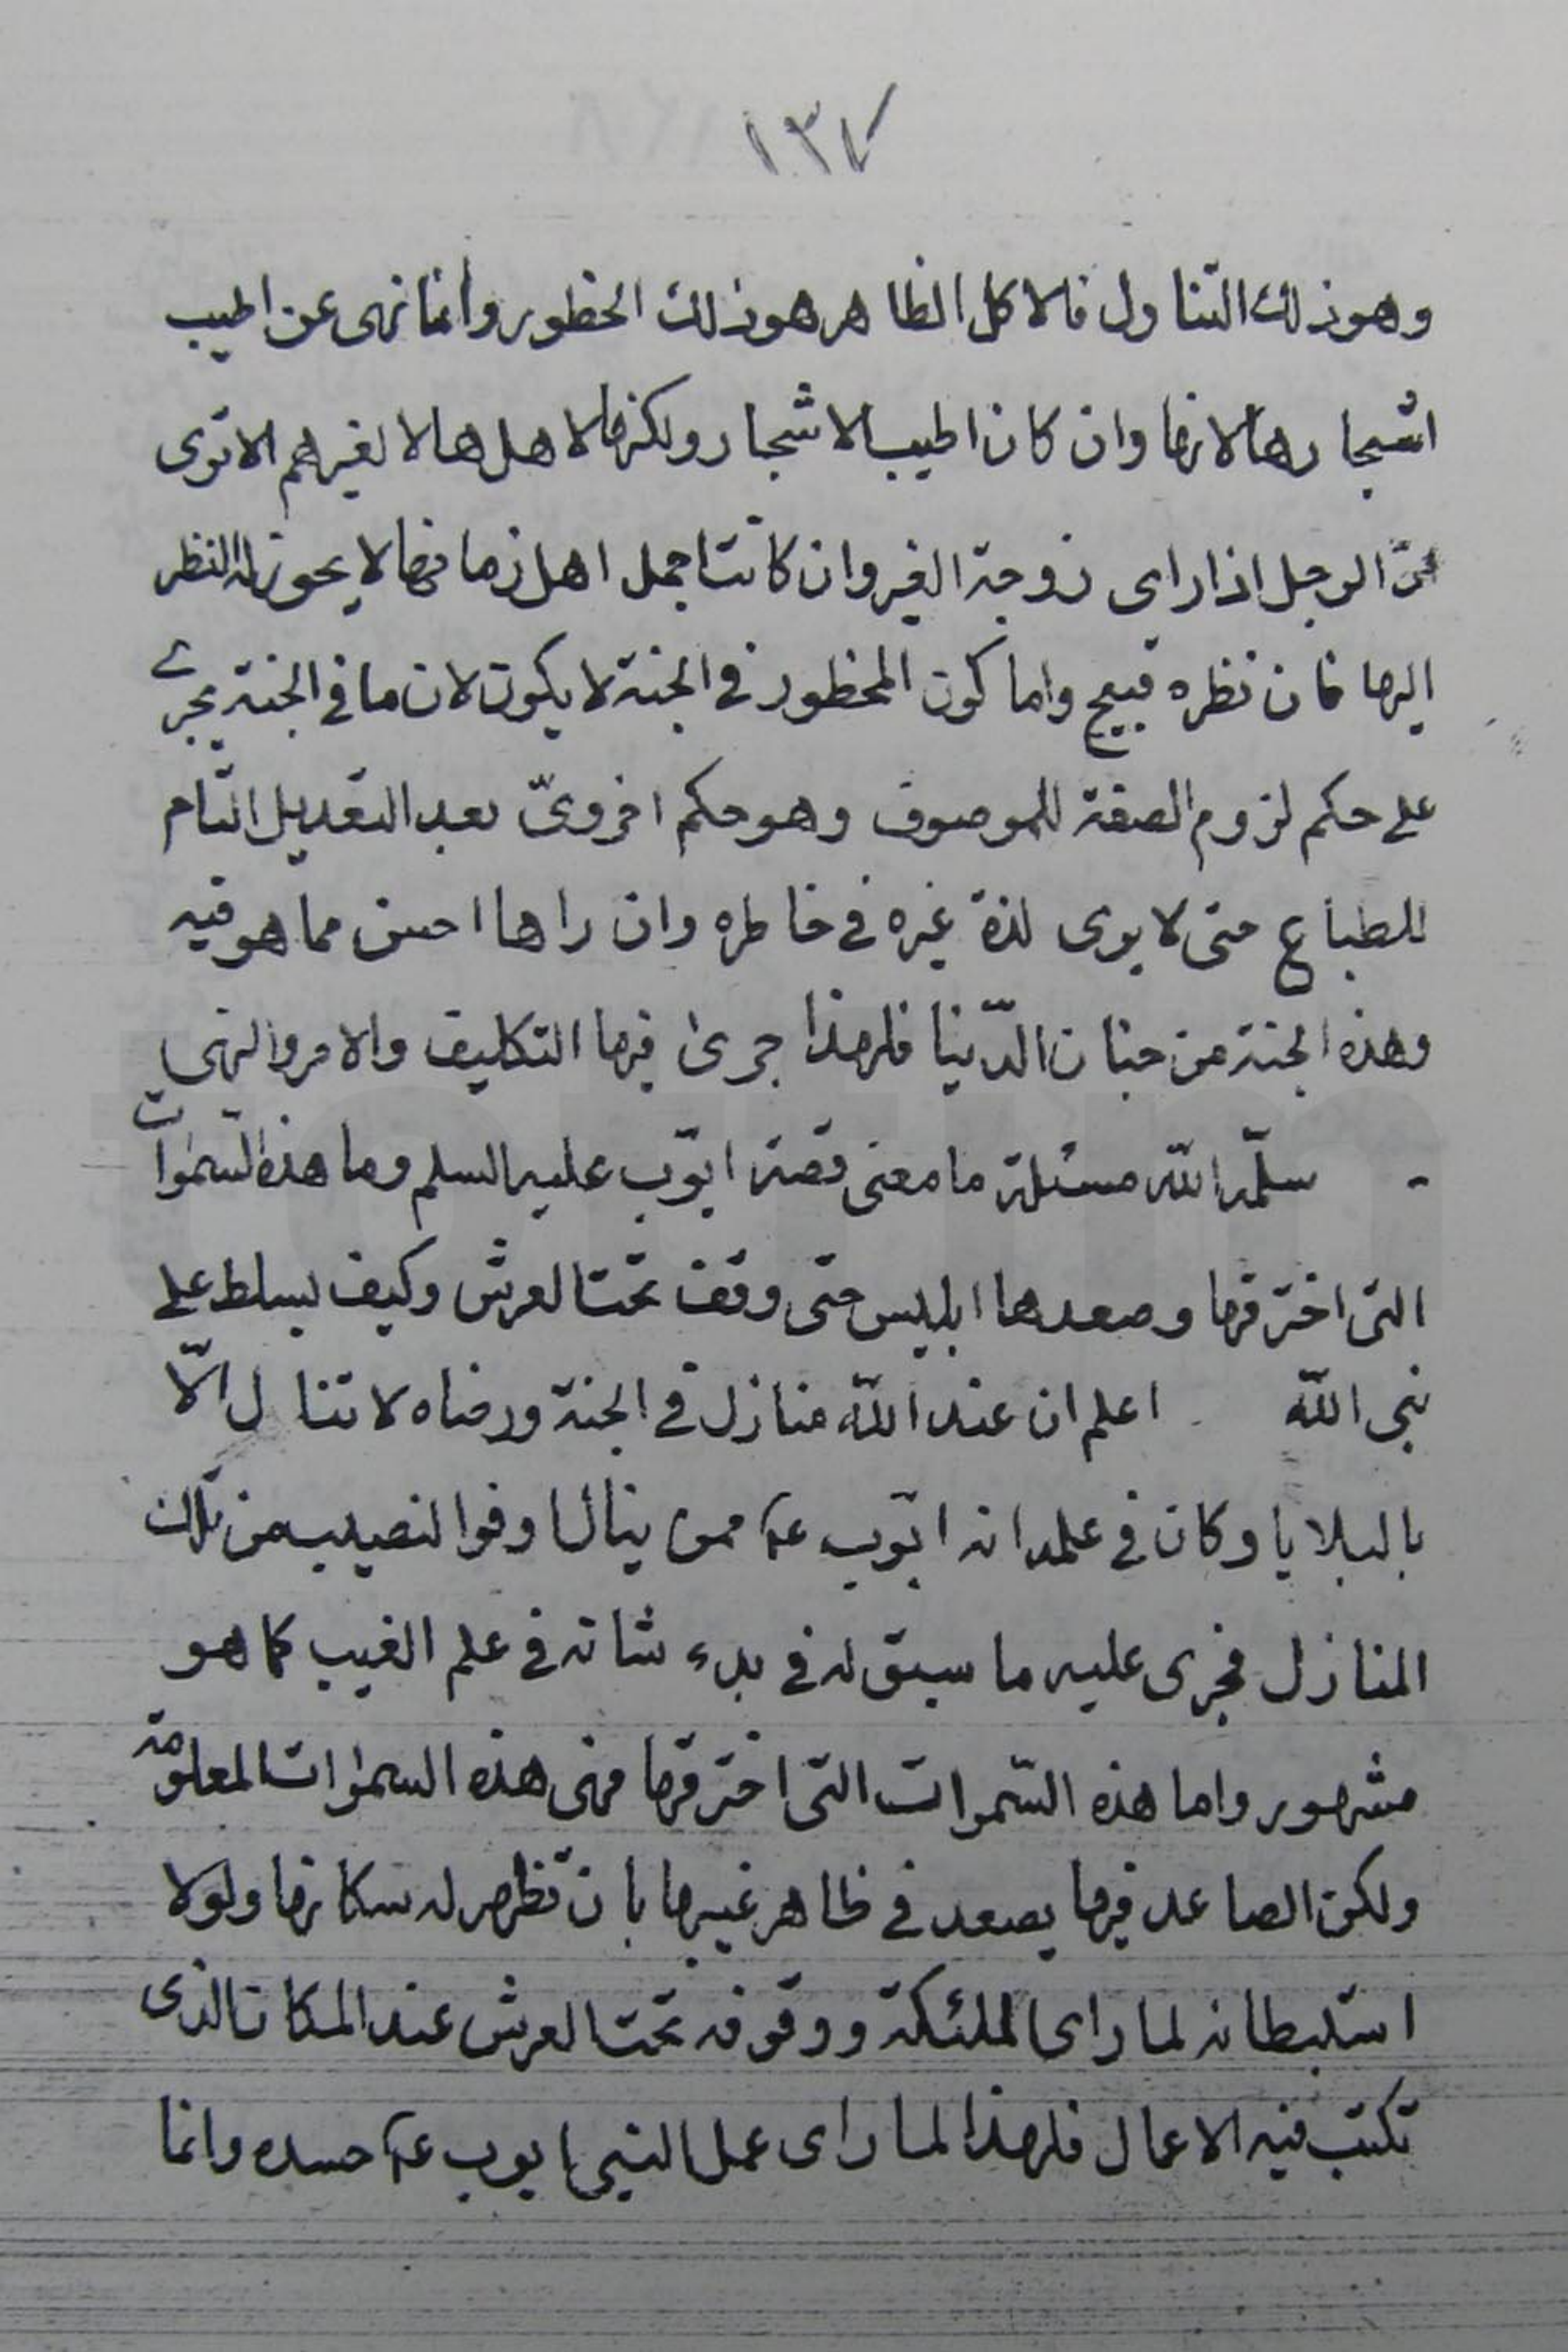 ١٣٧
وهو ذلك التناول فالاكل الظاهر هو ذلك الحظور وانما نهى عن اطيب
اشجارها لانها وان كان اطيب الاشجار ولكنها لاهلها لا لغيرهم الا ترى
ان الرجل اذا راى زوجة الغير وان كانت اجمل اهل زمانها لا يجوز له النظر
اليها فان نظره قبيح واما كون المحظور في الجنة لا يكون لان ما في الجنة يجرى
على حكم لزوم الصفة للموصوف وهو حكم اخروىّ بعد التعديل التّام
للطباع حتى لا يرى لذة غيره في خاطره وان راها احسن مما هو فيه
وهذه الجنة من جنان الدّنيا فلهذا جرى فيها التكليف والامر والنهى
- سلّمه اللّه مسئلة ما معنى قصة ايّوب عليه السلم وما هذه السّموات
التى اخترقها وصعدها ابليس حتى وقف تحت العرش وكيف يسلط على
نبى اللّه اعلم ان عند اللّه منازل في الجنة ورضاه لا تنال الّا
بالبلايا وكان في علمه انه ايّوب ع ممن ينال اوفو النصيب من تلك
المنازل فجرى عليه ما سبق له في بدء شانه في علم الغيب كما هو
مشهور واما هذه السّموات التى اخترقها فهى هذه السموات المعلومة
ولكن الصاعد فيها يصعد في ظاهر غيبها بان تظهر له سكانها ولولا
استبطانه لما راى الملئكة ووقوفه تحت العرش عند المكان الذى
تكتب فيه الاعمال فلهذا لما راى عمل النبى ايوب ع حسده وانما